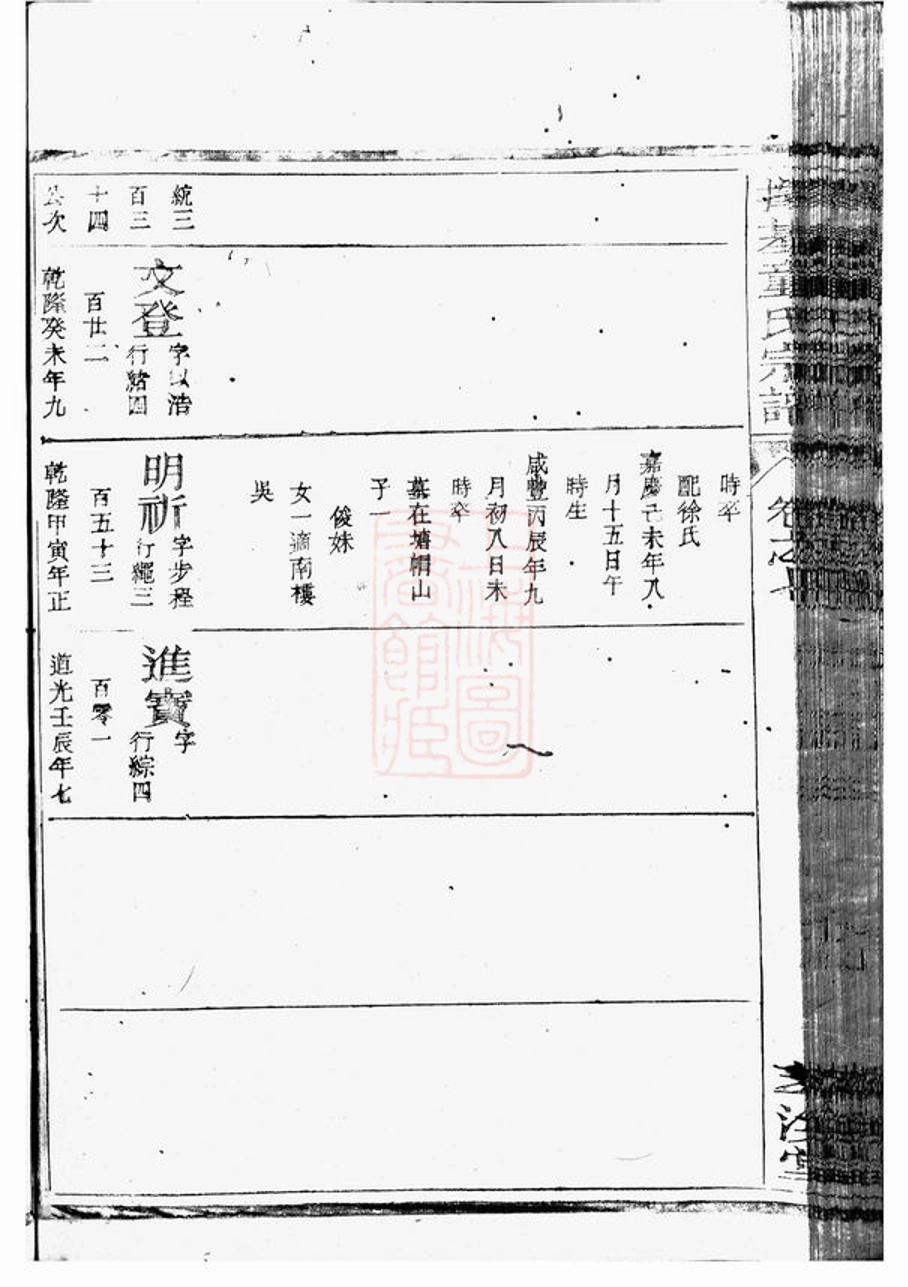 童氏宗譜
卷之
堂
時卒
配徐氏
嘉慶己未年八
月十五日午
時生
咸豐丙辰年九
月初八日未
時卒
墓在塘帽山
子一
俊妹
女一適南樓
吳
統三
百三
十四
公次
文登
字以浩
行緒四
百廿二
乾隆癸未年九
明祈
字步程
行繩三
百五十三
乾隆甲寅年正
進寶
字
行綜四
百零一
道光壬辰年七
上海圖
書館藏